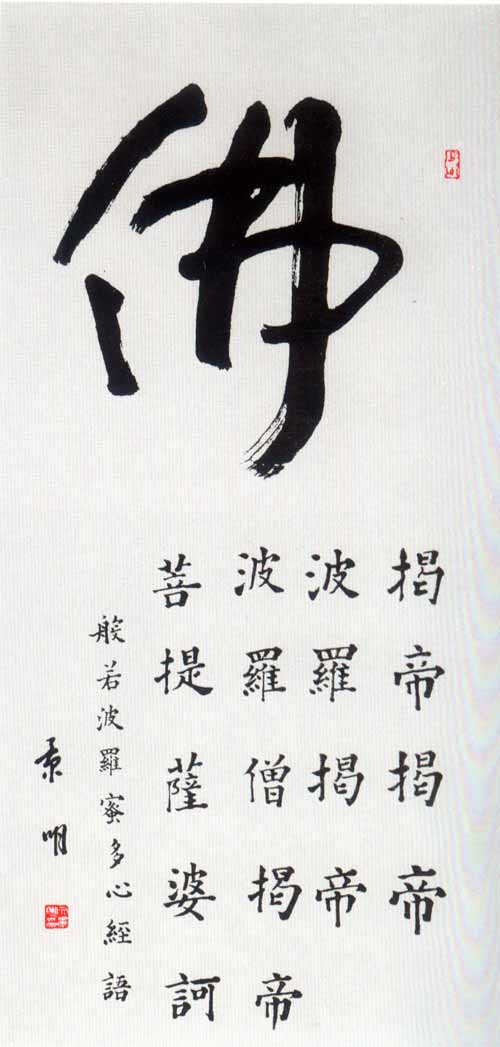 佛
揭帝揭帝
波羅揭帝
波羅僧揭帝
菩提薩婆訶
般若波羅蜜多心經語